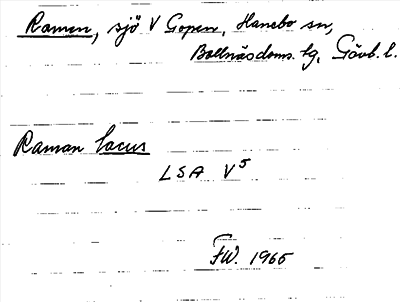 Ramen, sjö V Gopen, Hanebo sn,
Bollnäsdoms. lg, Gävb. l.
Raman lacus
LSA V5
FW. 1966